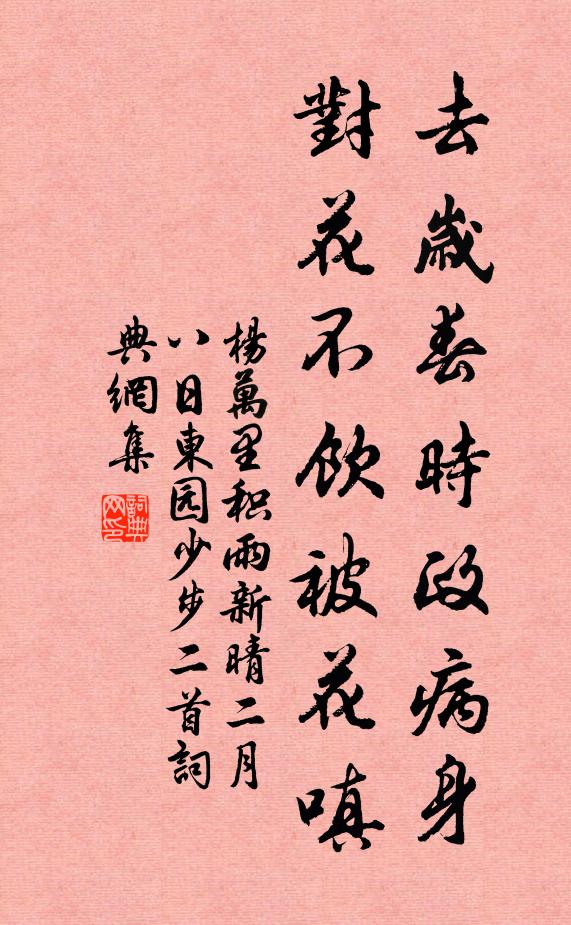 去歲春時政病身
對花不飲被花嗔
楊萬里积雨新晴二月
八日東园少步二首詞
典網集
詞典
网印